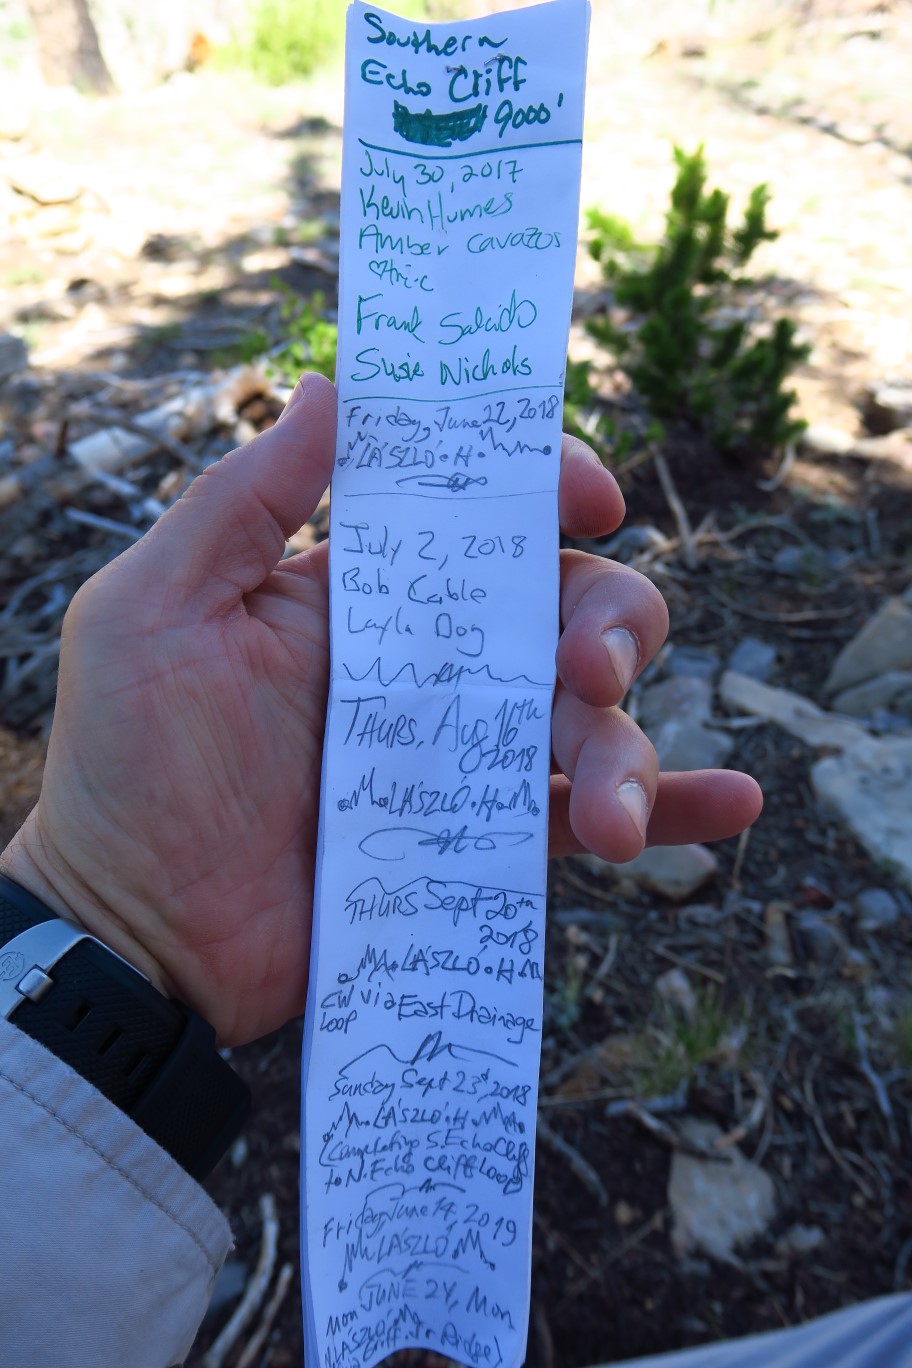 Southern
Echo Cliff
9000'
July 30, 2017
Kevin Humes
Amber Cavazos
Frank Salcido
Susie Nichols
Friday, June 22, 2018
LÁSZLÓ • H •
July 2, 2018
Bob Cable
Layla Dog
THURS, Aug 16th
2018
LÁSZLÓ • H •
THURS Sept 20th
2018
LÁSZLÓ • H
CW via East Drainage
Loop
Sunday Sept 23d, 2018
LÁSZLÓ • H •
(Completing S. Echo Cliff
to N. Echo Cliff Loop)
Friday June 14, 2019
LÁSZLÓ
JUNE 24, Mon
LÁSZLÓ
Cliff Jr Ridge)